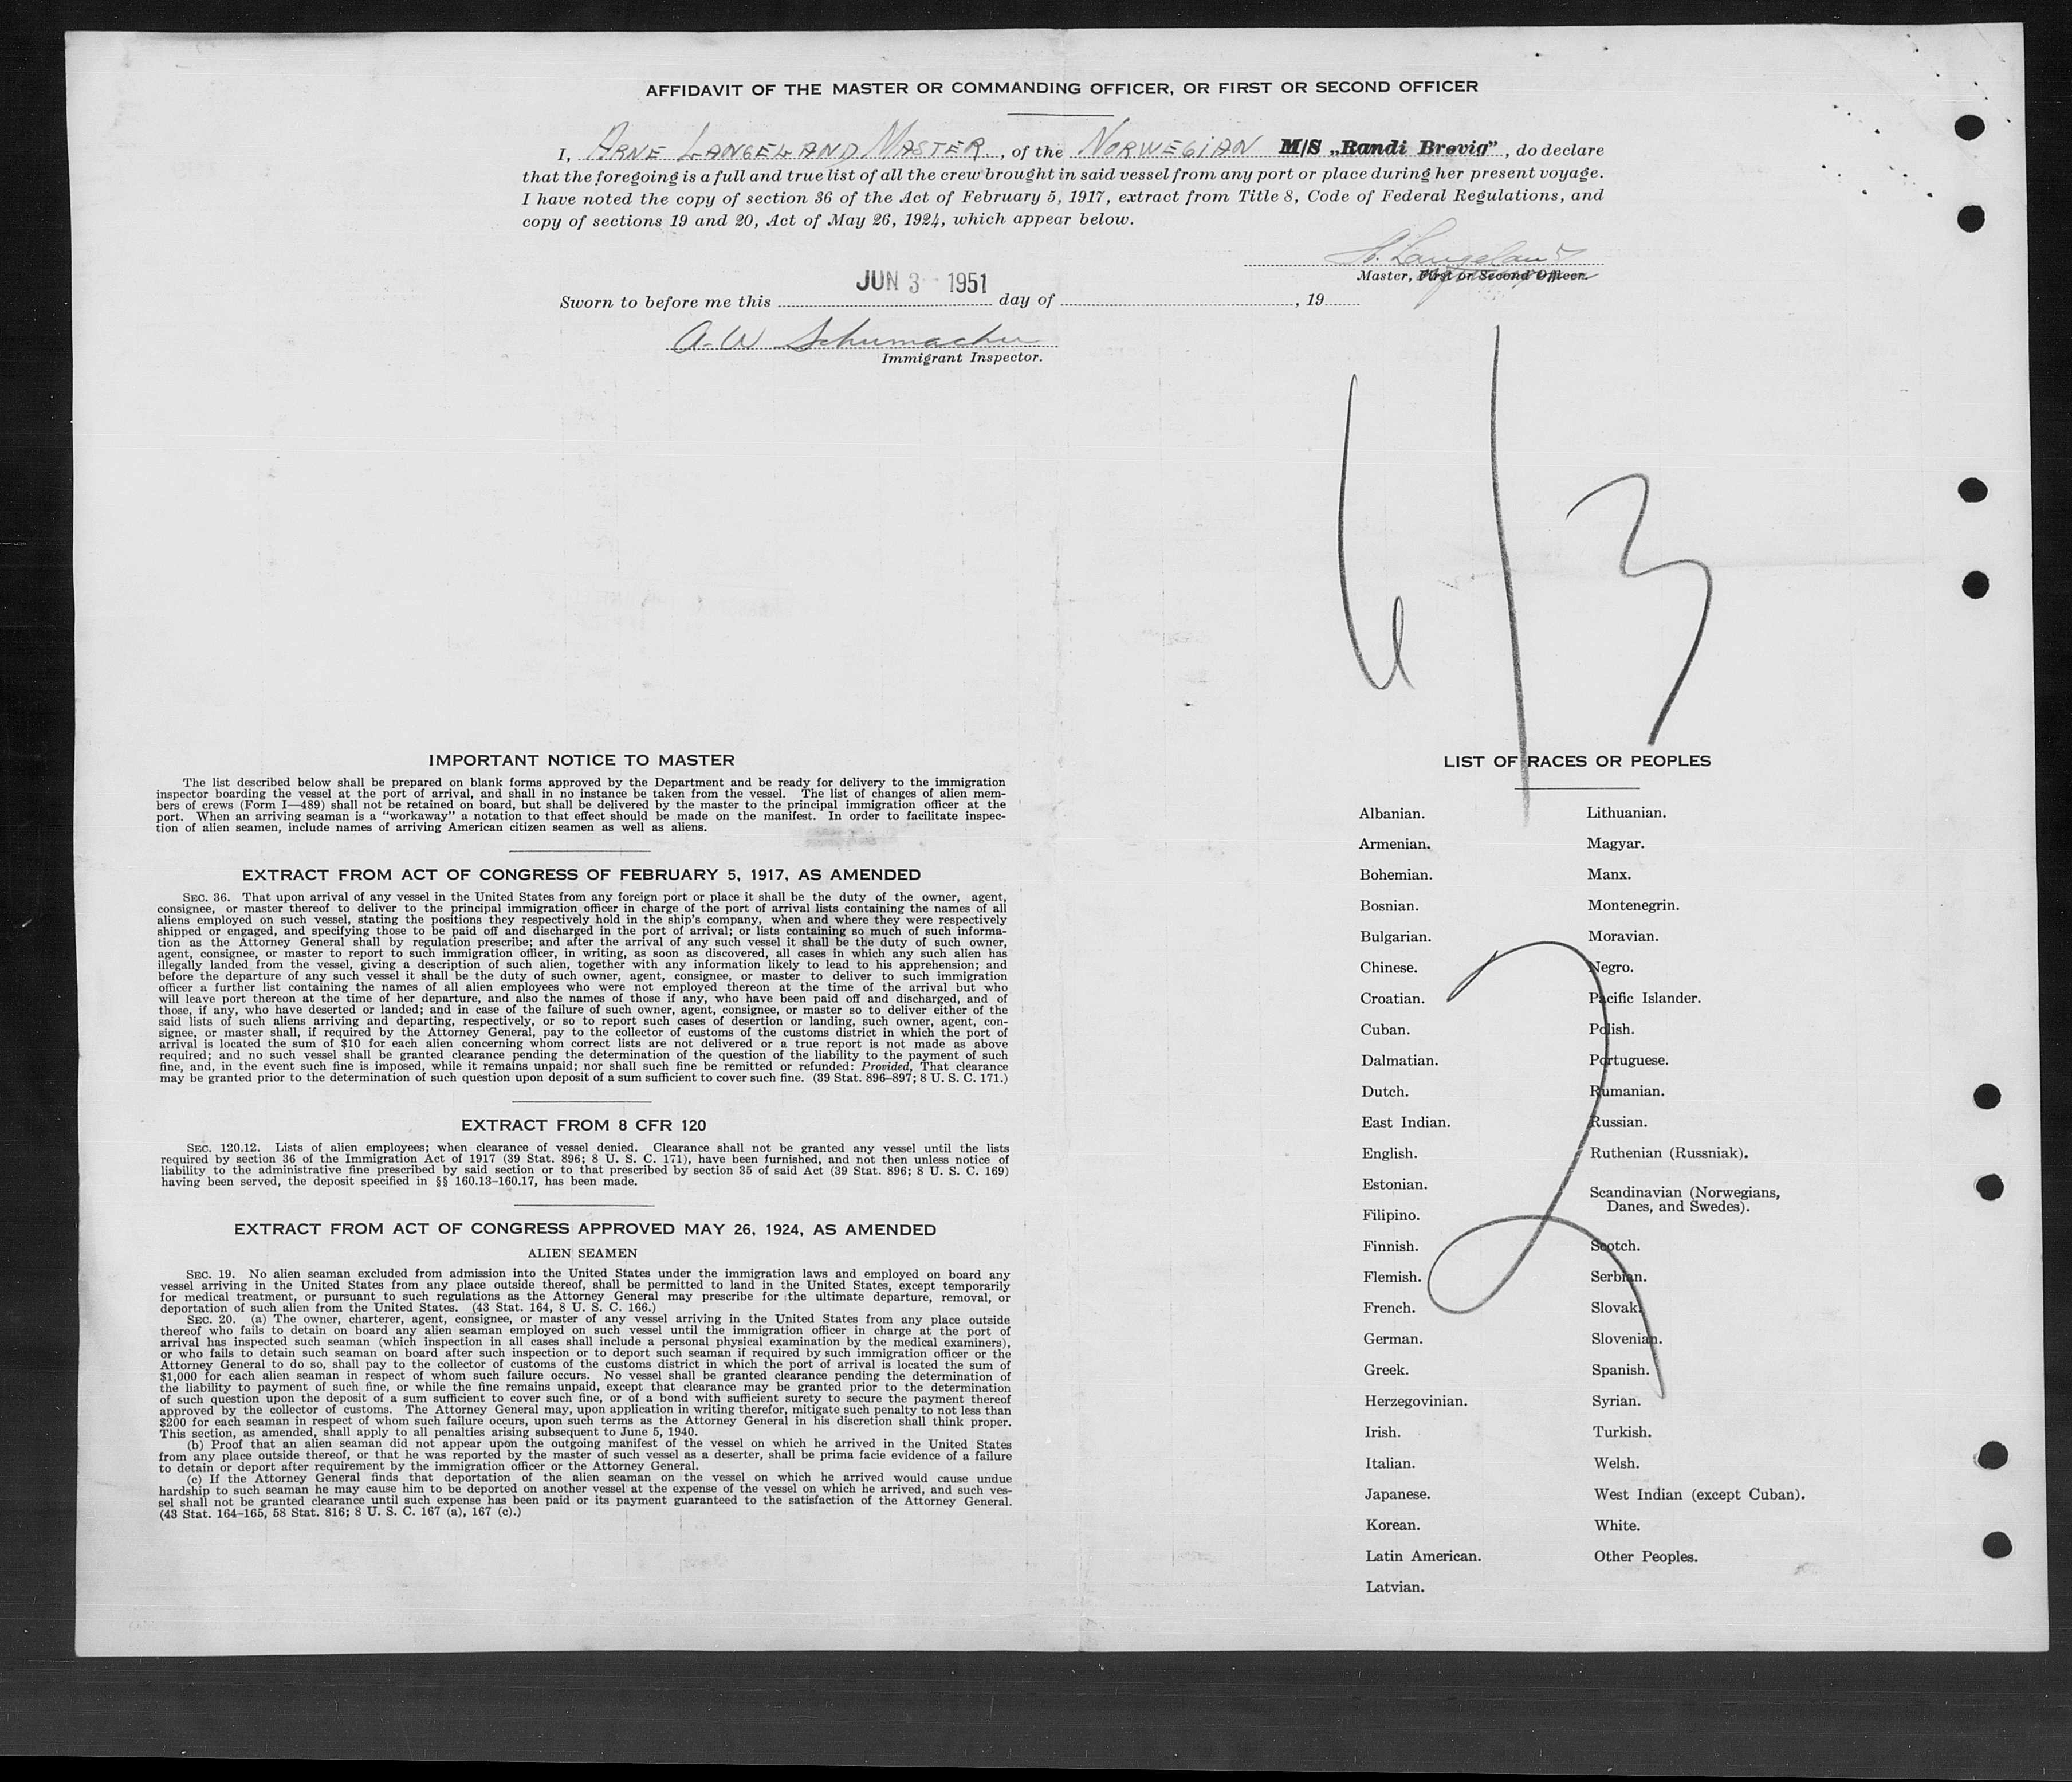 AFFIDAVIT OF THE MASTER OR COMMANDING OFFICER, OR FIRST OR SECOND OFFICER
I, ARNE LANGELAND MASTER, of the NORWEGIAN M/S „Randi Brøvig”, do declare
that the foregoing is a full and true list of all the crew brought in said vessel from any port or place during her present voyage.
I have noted the copy of section 36 of the Act of February 5, 1917, extract from Title 8, Code of Federal Regulations, and
copy of sections 19 and 20, Act of May 26, 1924, which appear below.
A. Langeland
Master, First or Second Officer.
JUN 3 1951
Sworn to before me this day of , 19
A. W Schumacher
Immigrant Inspector.
6/3
IMPORTANT NOTICE TO MASTER
The list described below shall be prepared on blank forms approved by the Department and be ready for delivery to the immigration
inspector boarding the vessel at the port of arrival, and shall in no instance be taken from the vessel. The list of changes of alien mem-
bers of crews (Form I—489) shall not be retained on board, but shall be delivered by the master to the principal immigration officer at the
port. When an arriving seaman is a “workaway” a notation to that effect should be made on the manifest. In order to facilitate inspec-
tion of alien seamen, include names of arriving American citizen seamen as well as aliens.
EXTRACT FROM ACT OF CONGRESS OF FEBRUARY 5, 1917, AS AMENDED
SEC. 36. That upon arrival of any vessel in the United States from any foreign port or place it shall be the duty of the owner, agent,
consignee, or master thereof to deliver to the principal immigration officer in charge of the port of arrival lists containing the names of all
aliens employed on such vessel, stating the positions they respectively hold in the ship’s company, when and where they were respectively
shipped or engaged, and specifying those to be paid off and discharged in the port of arrival; or lists containing so much of such informa-
tion as the Attorney General shall by regulation prescribe; and after the arrival of any such vessel it shall be the duty of such owner,
agent, consignee, or master to report to such immigration officer, in writing, as soon as discovered, all cases in which any such alien has
illegally landed from the vessel, giving a description of such alien, together with any information likely to lead to his apprehension; and
before the departure of any such vessel it shall be the duty of such owner, agent, consignee, or master to deliver to such immigration
officer a further list containing the names of all alien employees who were not employed thereon at the time of the arrival but who
will leave port thereon at the time of her departure, and also the names of those if any, who have been paid off and discharged, and of
those, if any, who have deserted or landed; and in case of the failure of such owner, agent, consignee, or master so to deliver either of the
said lists of such aliens arriving and departing, respectively, or so to report such cases of desertion or landing, such owner, agent, con-
signee, or master shall, if required by the Attorney General, pay to the collector of customs of the customs district in which the port of
arrival is located the sum of $10 for each alien concerning whom correct lists are not delivered or a true report is not made as above
required; and no such vessel shall be granted clearance pending the determination of the question of the liability to the payment of such
fine, and, in the event such fine is imposed, while it remains unpaid; nor shall such fine be remitted or refunded: Provided, That clearance
may be granted prior to the determination of such question upon deposit of a sum sufficient to cover such fine. (39 Stat. 896–897; 8 U. S. C. 171.)
EXTRACT FROM 8 CFR 120
SEC. 120.12. Lists of alien employees; when clearance of vessel denied. Clearance shall not be granted any vessel until the lists
required by section 36 of the Immigration Act of 1917 (39 Stat. 896; 8 U. S. C. 171), have been furnished, and not then unless notice of
liability to the administrative fine prescribed by said section or to that prescribed by section 35 of said Act (39 Stat. 896; 8 U. S. C. 169)
having been served, the deposit specified in §§ 160.13–160.17, has been made.
EXTRACT FROM ACT OF CONGRESS APPROVED MAY 26, 1924, AS AMENDED
ALIEN SEAMEN
SEC. 19. No alien seaman excluded from admission into the United States under the immigration laws and employed on board any
vessel arriving in the United States from any place outside thereof, shall be permitted to land in the United States, except temporarily
for medical treatment, or pursuant to such regulations as the Attorney General may prescribe for the ultimate departure, removal, or
deportation of such alien from the United States. (43 Stat. 164, 8 U. S. C. 166.)
SEC. 20. (a) The owner, charterer, agent, consignee, or master of any vessel arriving in the United States from any place outside
thereof who fails to detain on board any alien seaman employed on such vessel until the immigration officer in charge at the port of
arrival has inspected such seaman (which inspection in all cases shall include a personal physical examination by the medical examiners),
or who fails to detain such seaman on board after such inspection or to deport such seaman if required by such immigration officer or the
Attorney General to do so, shall pay to the collector of customs of the customs district in which the port of arrival is located the sum of
$1,000 for each alien seaman in respect of whom such failure occurs. No vessel shall be granted clearance pending the determination of
the liability to payment of such fine, or while the fine remains unpaid, except that clearance may be granted prior to the determination
of such question upon the deposit of a sum sufficient to cover such fine, or of a bond with sufficient surety to secure the payment thereof
approved by the collector of customs. The Attorney General may, upon application in writing therefor, mitigate such penalty to not less than
$200 for each seaman in respect of whom such failure occurs, upon such terms as the Attorney General in his discretion shall think proper.
This section, as amended, shall apply to all penalties arising subsequent to June 5, 1940.
(b) Proof that an alien seaman did not appear upon the outgoing manifest of the vessel on which he arrived in the United States
from any place outside thereof, or that he was reported by the master of such vessel as a deserter, shall be prima facie evidence of a failure
to detain or deport after requirement by the immigration officer or the Attorney General.
(c) If the Attorney General finds that deportation of the alien seaman on the vessel on which he arrived would cause undue
hardship to such seaman he may cause him to be deported on another vessel at the expense of the vessel on which he arrived, and such ves-
sel shall not be granted clearance until such expense has been paid or its payment guaranteed to the satisfaction of the Attorney General.
(43 Stat. 164–165, 58 Stat. 816; 8 U. S. C. 167 (a), 167 (c).)
LIST OF RACES OR PEOPLES
Albanian.
Armenian.
Bohemian.
Bosnian.
Bulgarian.
Chinese.
Croatian.
Cuban.
Dalmatian.
Dutch.
East Indian.
English.
Estonian.
Filipino.
Finnish.
Flemish.
French.
German.
Greek.
Herzegovinian.
Irish.
Italian.
Japanese.
Korean.
Latin American.
Latvian.
Lithuanian.
Magyar.
Manx.
Montenegrin.
Moravian.
Negro.
Pacific Islander.
Polish.
Portuguese.
Rumanian.
Russian.
Ruthenian (Russniak).
Scandinavian (Norwegians,
Danes, and Swedes).
Scotch.
Serbian.
Slovak.
Slovenian.
Spanish.
Syrian.
Turkish.
Welsh.
West Indian (except Cuban).
White.
Other Peoples.
2